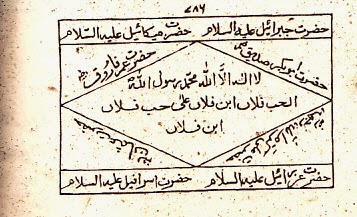 ۷۸۶
حضرت جبرائیل علیہ السلام حضرت میکائیل علیہ السلام
حضرت ابوبکر صدیق حضرت عمر فاروق
لا الہ الا اللہ محمد رسول اللہ
الحب فلاں ابن فلاں علی حب فلاں
ابن فلاں
حضرت عثمان
حضرت عزرائیل علیہ السلام حضرت اسرافیل علیہ السلام